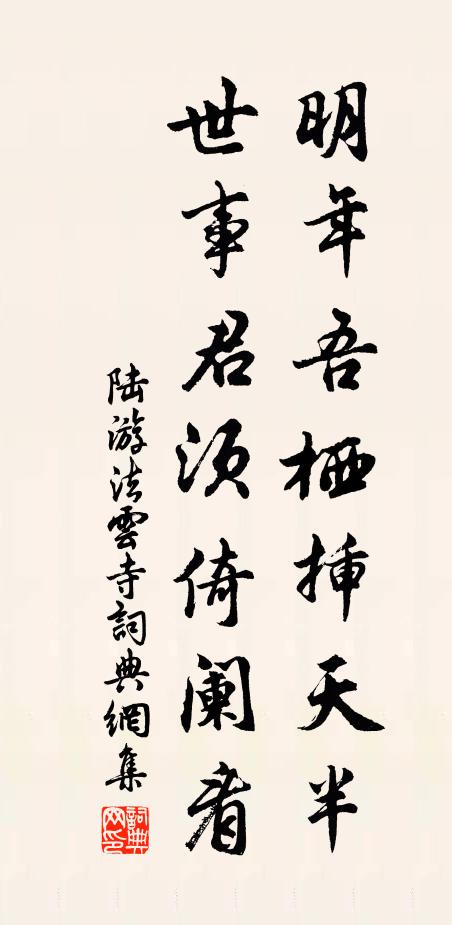 明年吾栖插天半
世事君须倚阑看
陆游法雲寺詞典網集
詞典网印